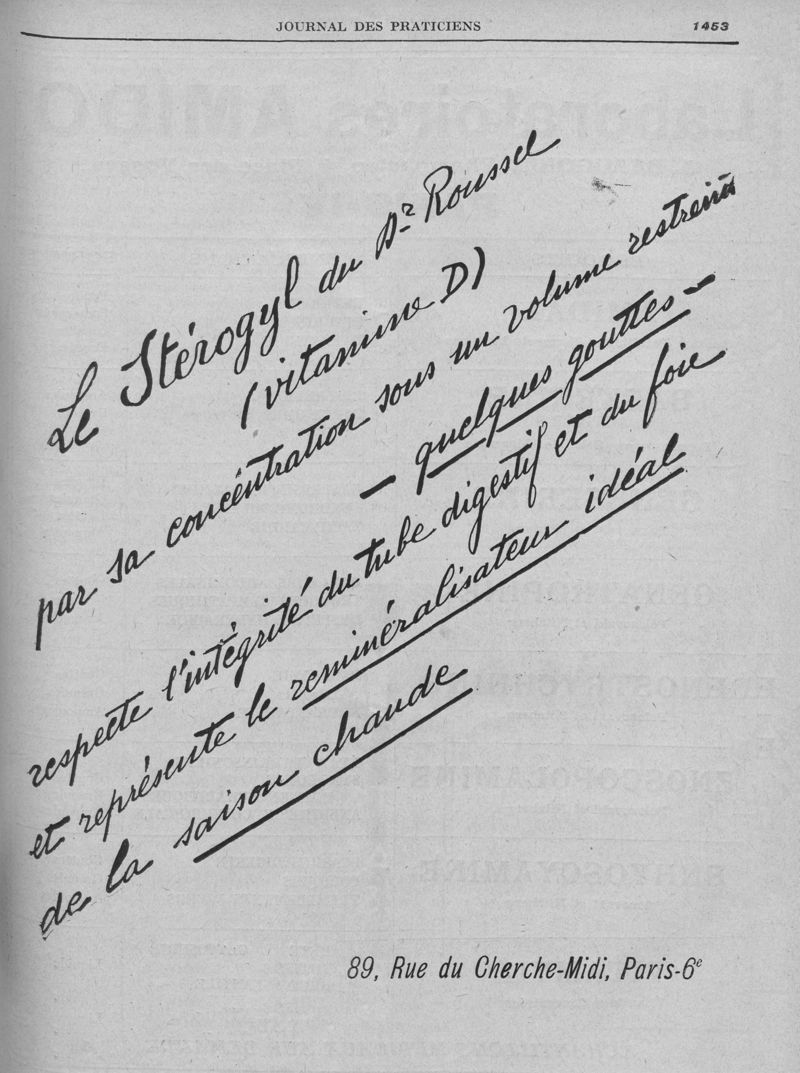 JOURNAL DES PRATICIENS 1453
Le Stérogyl du Dr Roussel
(vitamine D)
par sa concentration sous un volume restreint
— quelques gouttes —
respecte l'intégrité du tube digestif et du foie
et représente le reminéralisateur idéal
de la saison chaude
89, Rue du Cherche-Midi, Paris-6e